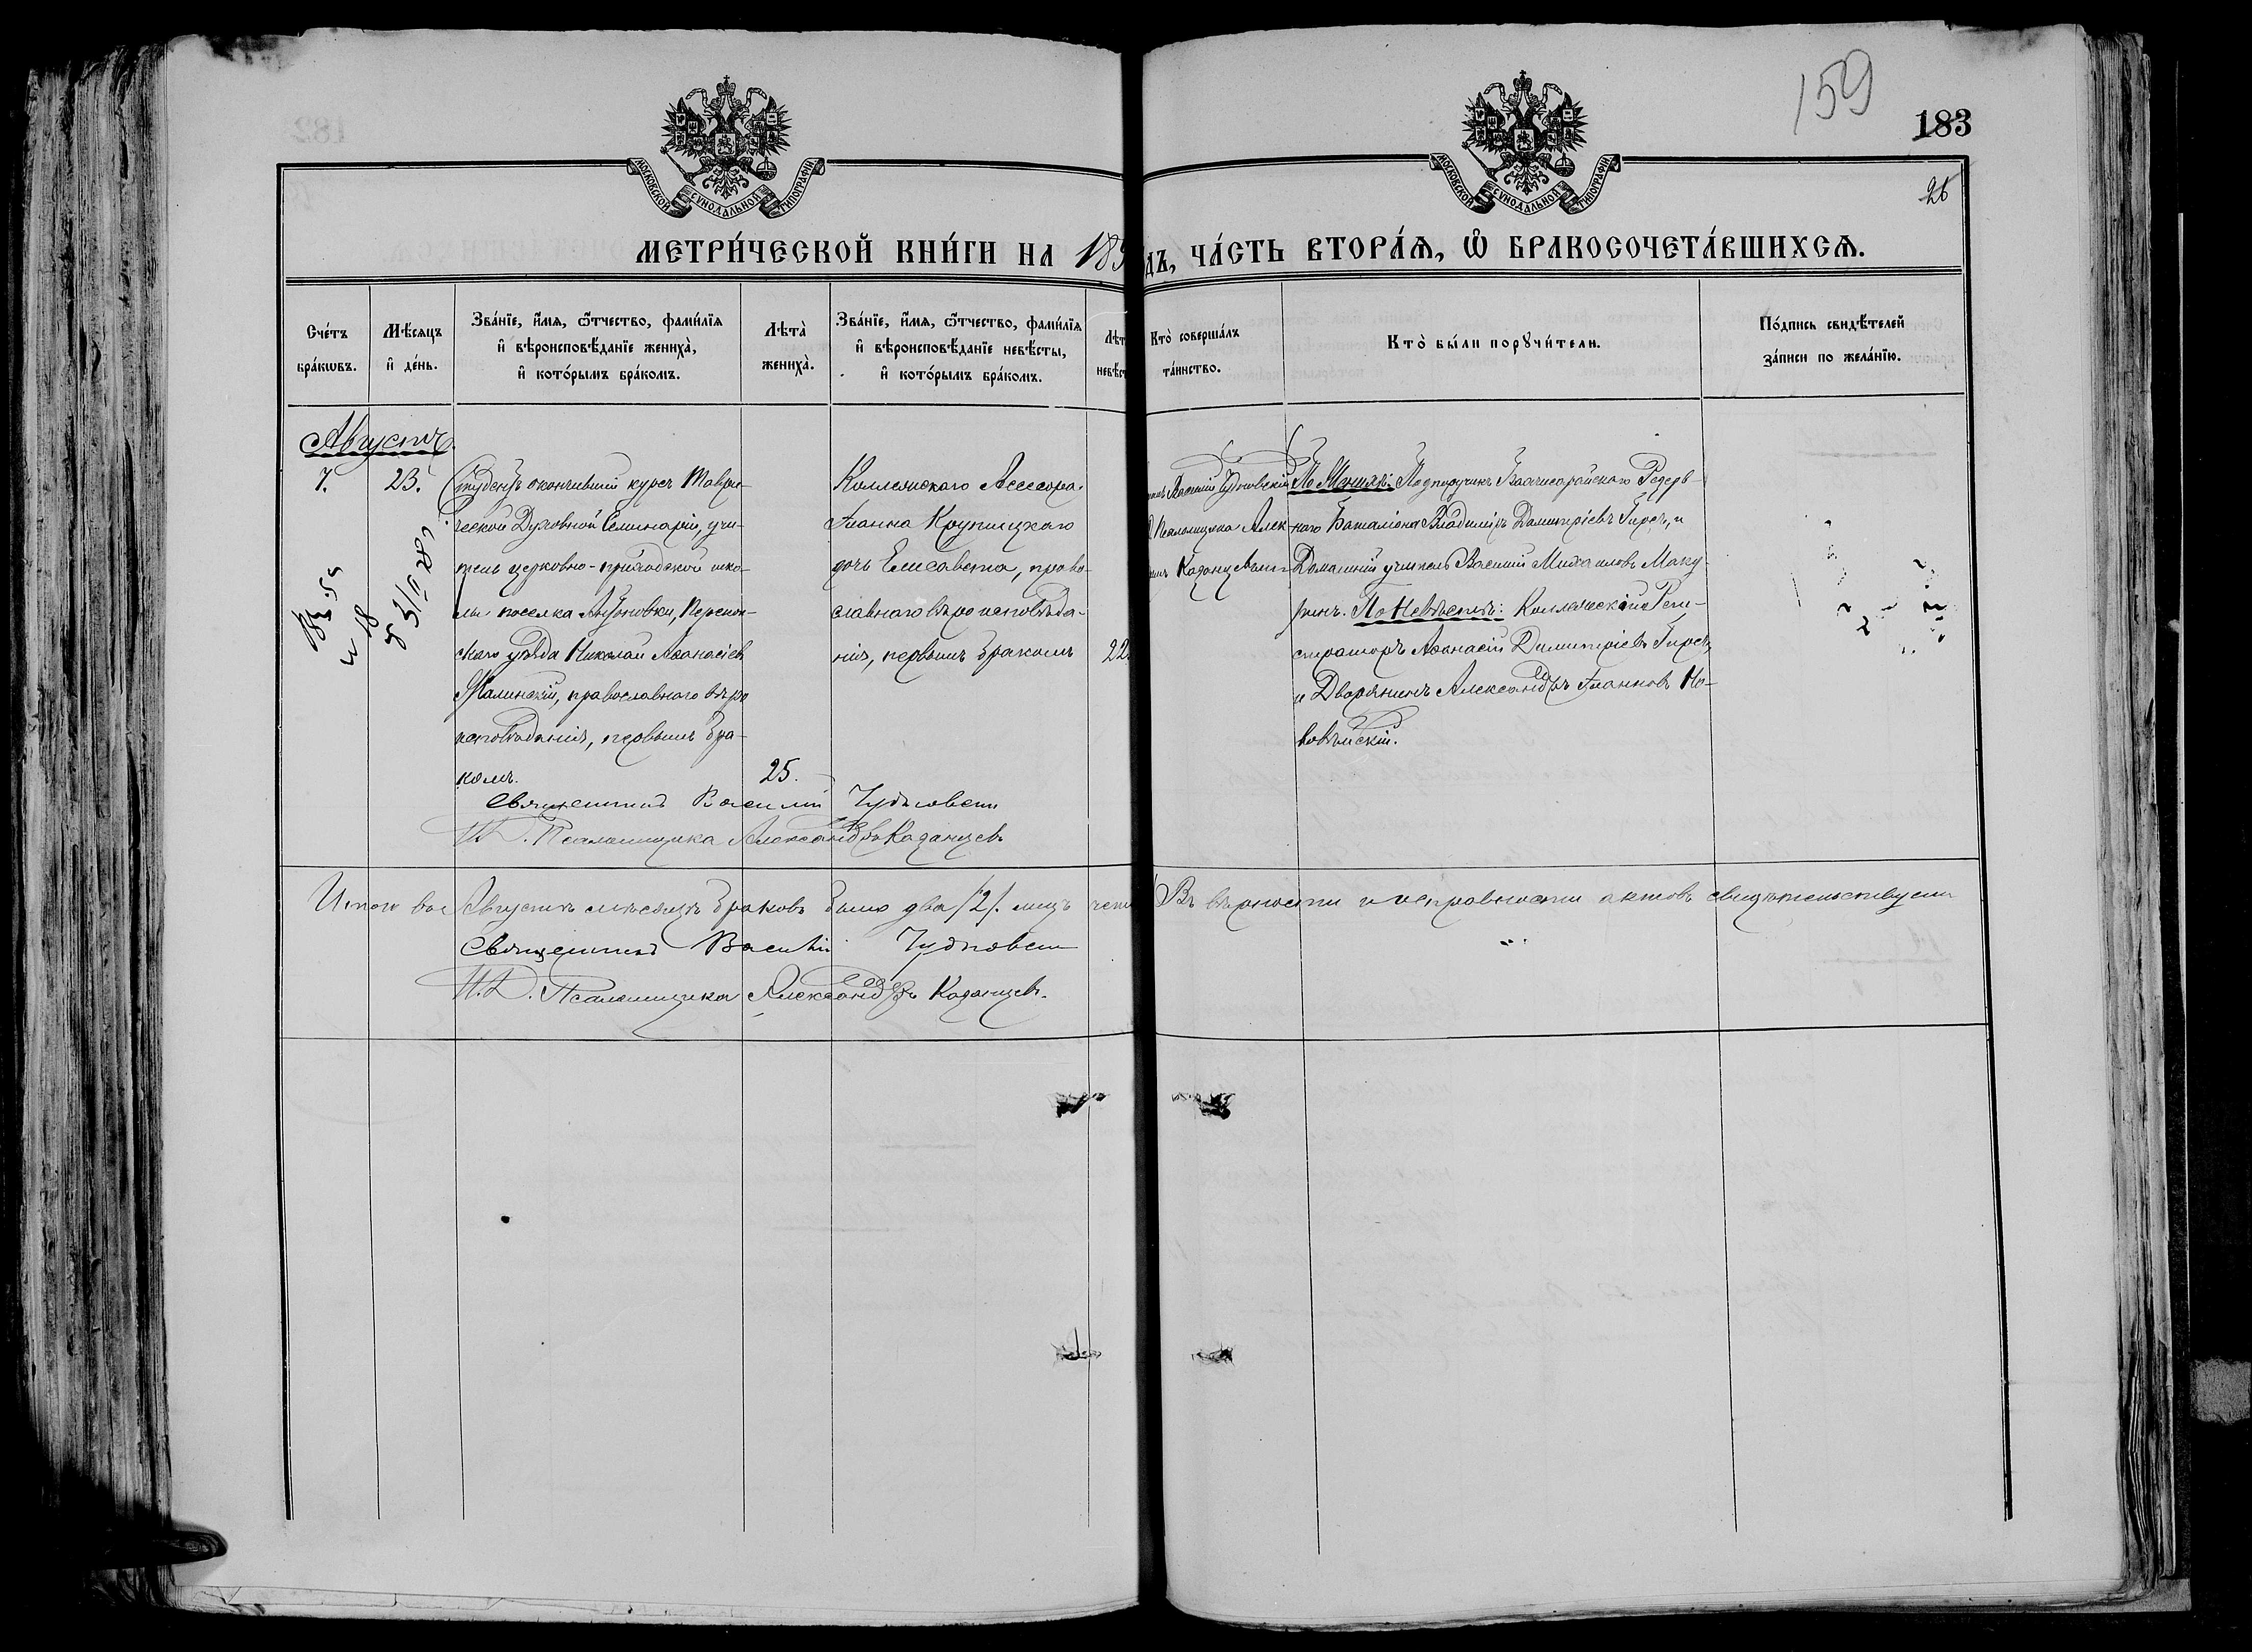 159
183
26
МОСКОВСКОЙ СУНОДАЛЬНОЙ ТИПОГРАФІИ
МОСКОВСКОЙ СУНОДАЛЬНОЙ ТИПОГРАФІИ
МЕТРИ́ЧЕСКОЙ КНИ́ГИ НА 189
ДЪ, ЧА́СТЬ ВТОРА́Ѧ, Ѽ БРАКОСОЧЕТА́ВШИХСѦ.
Сче́тъ бра́кѡвъ.
Мѣ́сѧцъ и҆ де́нь.
Зва́нїе, и҆́мѧ, ѻ҆́тчество, фами́лїѧ и҆ вѣроисповѣ́данїе жениха̀, и҆ кото́рымъ бра́комъ.
Лѣта̀ жениха̀.
Зва́нїе, и҆́мѧ, ѻ҆́тчество, фами́лїѧ и҆ вѣроисповѣ́данїе невѣ́сты, и҆ кото́рымъ бра́комъ.
Лѣт невѣст
Кто̀ соверша́лъ та́инство.
Кто̀ бы́ли порꙋчи́тели.
По́дпись свидѣ́телей за́писи по жела́нїю.
Августъ.
7.
23.
Студентъ окончившій курсъ Таври-
ческой Духовной Семинаріи, учи-
тель церковно-приходской шко-
лы поселка Перекоп-
скаго уѣзда Николай Аѳанасіевъ
православнаго вѣро
исповѣданія, первымъ бра-
комъ.
25.
Коллежскаго Ассесора
Іоанна Крупицкаго
дочь Елисавета, право-
славнаго вѣроисповѣда-
нія, первымъ бракомъ
22
Василій Чудновскій
Псаломщика Алек-
Казанцевъ
По Женихѣ: Подпоручикъ Бахчисарайскаго Резерв-
наго Баталіона Владиміръ Димитріевъ Гирсъ, и
Домашній учитель Василій Михаиловъ Маку-
ринъ. По Невѣстѣ: Коллежскій Реги-
страторъ Аѳанасій Димитріевъ Гирсъ,
и Дворянинъ Александръ Іоанновъ Но-
Священникъ Василій Чудновскій
И.Д. Псаломщика Александръ Казанцевъ
Итого въ Августѣ мѣсяцѣ браковъ было два /2/. лицъ четы
Въ вѣрности и исправности актовъ свидѣтельствуемъ
Священникъ Василій Чудновскій
И.Д. Псаломщика Александръ Казанцевъ.